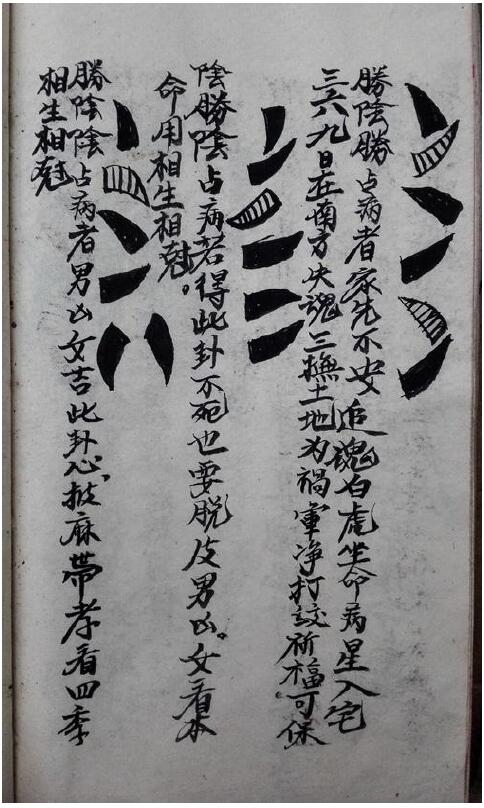 勝陰勝占病者家先不安追魂白虎坐命病星入宅
三六九日在南方失魂三撫土地为禍重净打設祈福可保
陰勝陰占病若得此卦不死也要脱皮男凶。女看本
命用相生相尅。
勝陰陰占病者男凶女吉此卦心披麻帶孝看四季
相生相尅